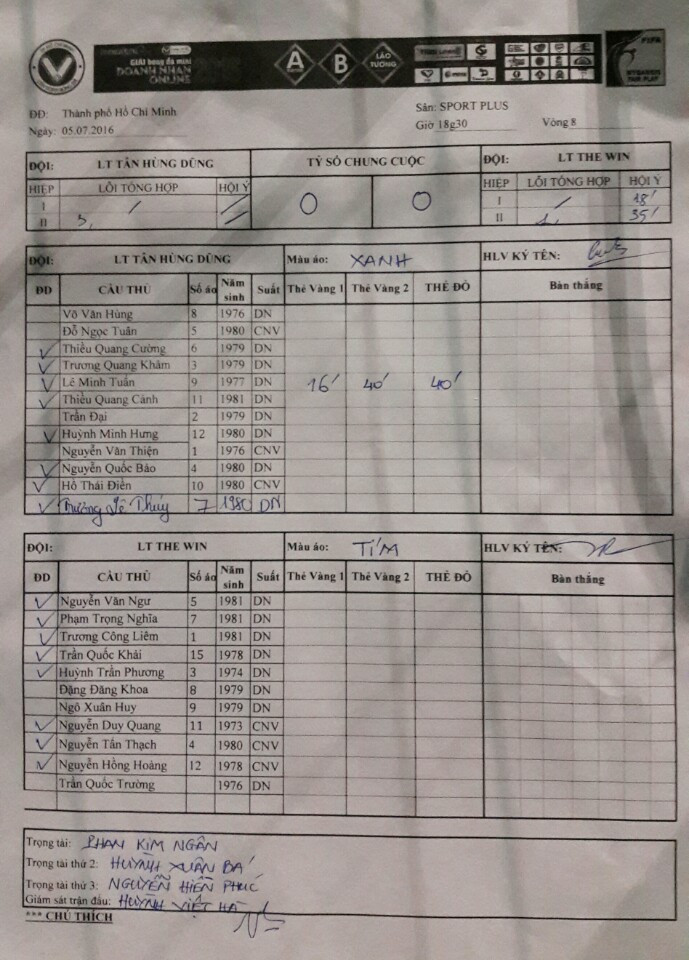 GIẢI bóng đá mini
DOANH NHÂN
ONLINE
A
B
LÃO
TƯỚNG
FIFA
MY GAME IS
FAIR PLAY
ĐĐ: Thành phố Hồ Chí Minh Sân: SPORT PLUS
Ngày: 05.07.2016 Giờ 18g30 Vòng 8
ĐỘI: LT TÂN HÙNG DŨNG TỶ SỐ CHUNG CUỘC ĐỘI: LT THE WIN
HIỆP LỖI TỔNG HỢP HỘI Ý 0 0 HIỆP LỖI TỔNG HỢP HỘI Ý
I I 18'
II II 35'
ĐỘI: LT TÂN HÙNG DŨNG Màu áo: XANH HLV KÝ TÊN:
ĐD CẦU THỦ Số áo Năm sinh Suất Thẻ Vàng 1 Thẻ Vàng 2 THẺ ĐỎ Bàn thắng
Võ Văn Hùng 8 1976 DN
Đỗ Ngọc Tuân 5 1980 CNV
Thiều Quang Cường 6 1979 DN
Trương Quang Khâm 3 1979 DN
Lê Minh Tuấn 9 1977 DN 16' 40' 40'
Thiều Quang Cảnh 11 1981 DN
Trần Đại 2 1979 DN
Huỳnh Minh Hưng 12 1980 DN
Nguyễn Văn Thiện 1 1976 CNV
Nguyễn Quốc Bảo 4 1980 DN
Hồ Thái Điền 10 1980 CNV
Trương Lê Thúy 7 1980 DN
ĐỘI: LT THE WIN Màu áo: TÍM HLV KÝ TÊN:
ĐD CẦU THỦ Số áo Năm sinh Suất Thẻ Vàng 1 Thẻ Vàng 2 THẺ ĐỎ Bàn thắng
Nguyễn Văn Ngư 5 1981 DN
Phạm Trọng Nghĩa 7 1981 DN
Trương Công Liêm 1 1981 DN
Trần Quốc Khải 15 1978 DN
Huỳnh Trần Phương 3 1974 DN
Đặng Đăng Khoa 8 1979 DN
Ngô Xuân Huy 9 1979 DN
Nguyễn Duy Quang 11 1973 CNV
Nguyễn Tấn Thạch 4 1980 CNV
Nguyễn Hồng Hoàng 12 1978 CNV
Trần Quốc Trường 1976 DN
Trọng tài: PHAN KIM NGÂN
Trọng tài thứ 2: HUỲNH XUÂN BÁ
Trọng tài thứ 3: NGUYỄN HIỀN PHÚC
Giám sát trận đấu: HUỲNH VIỆT HÀ
*** CHÚ THÍCH